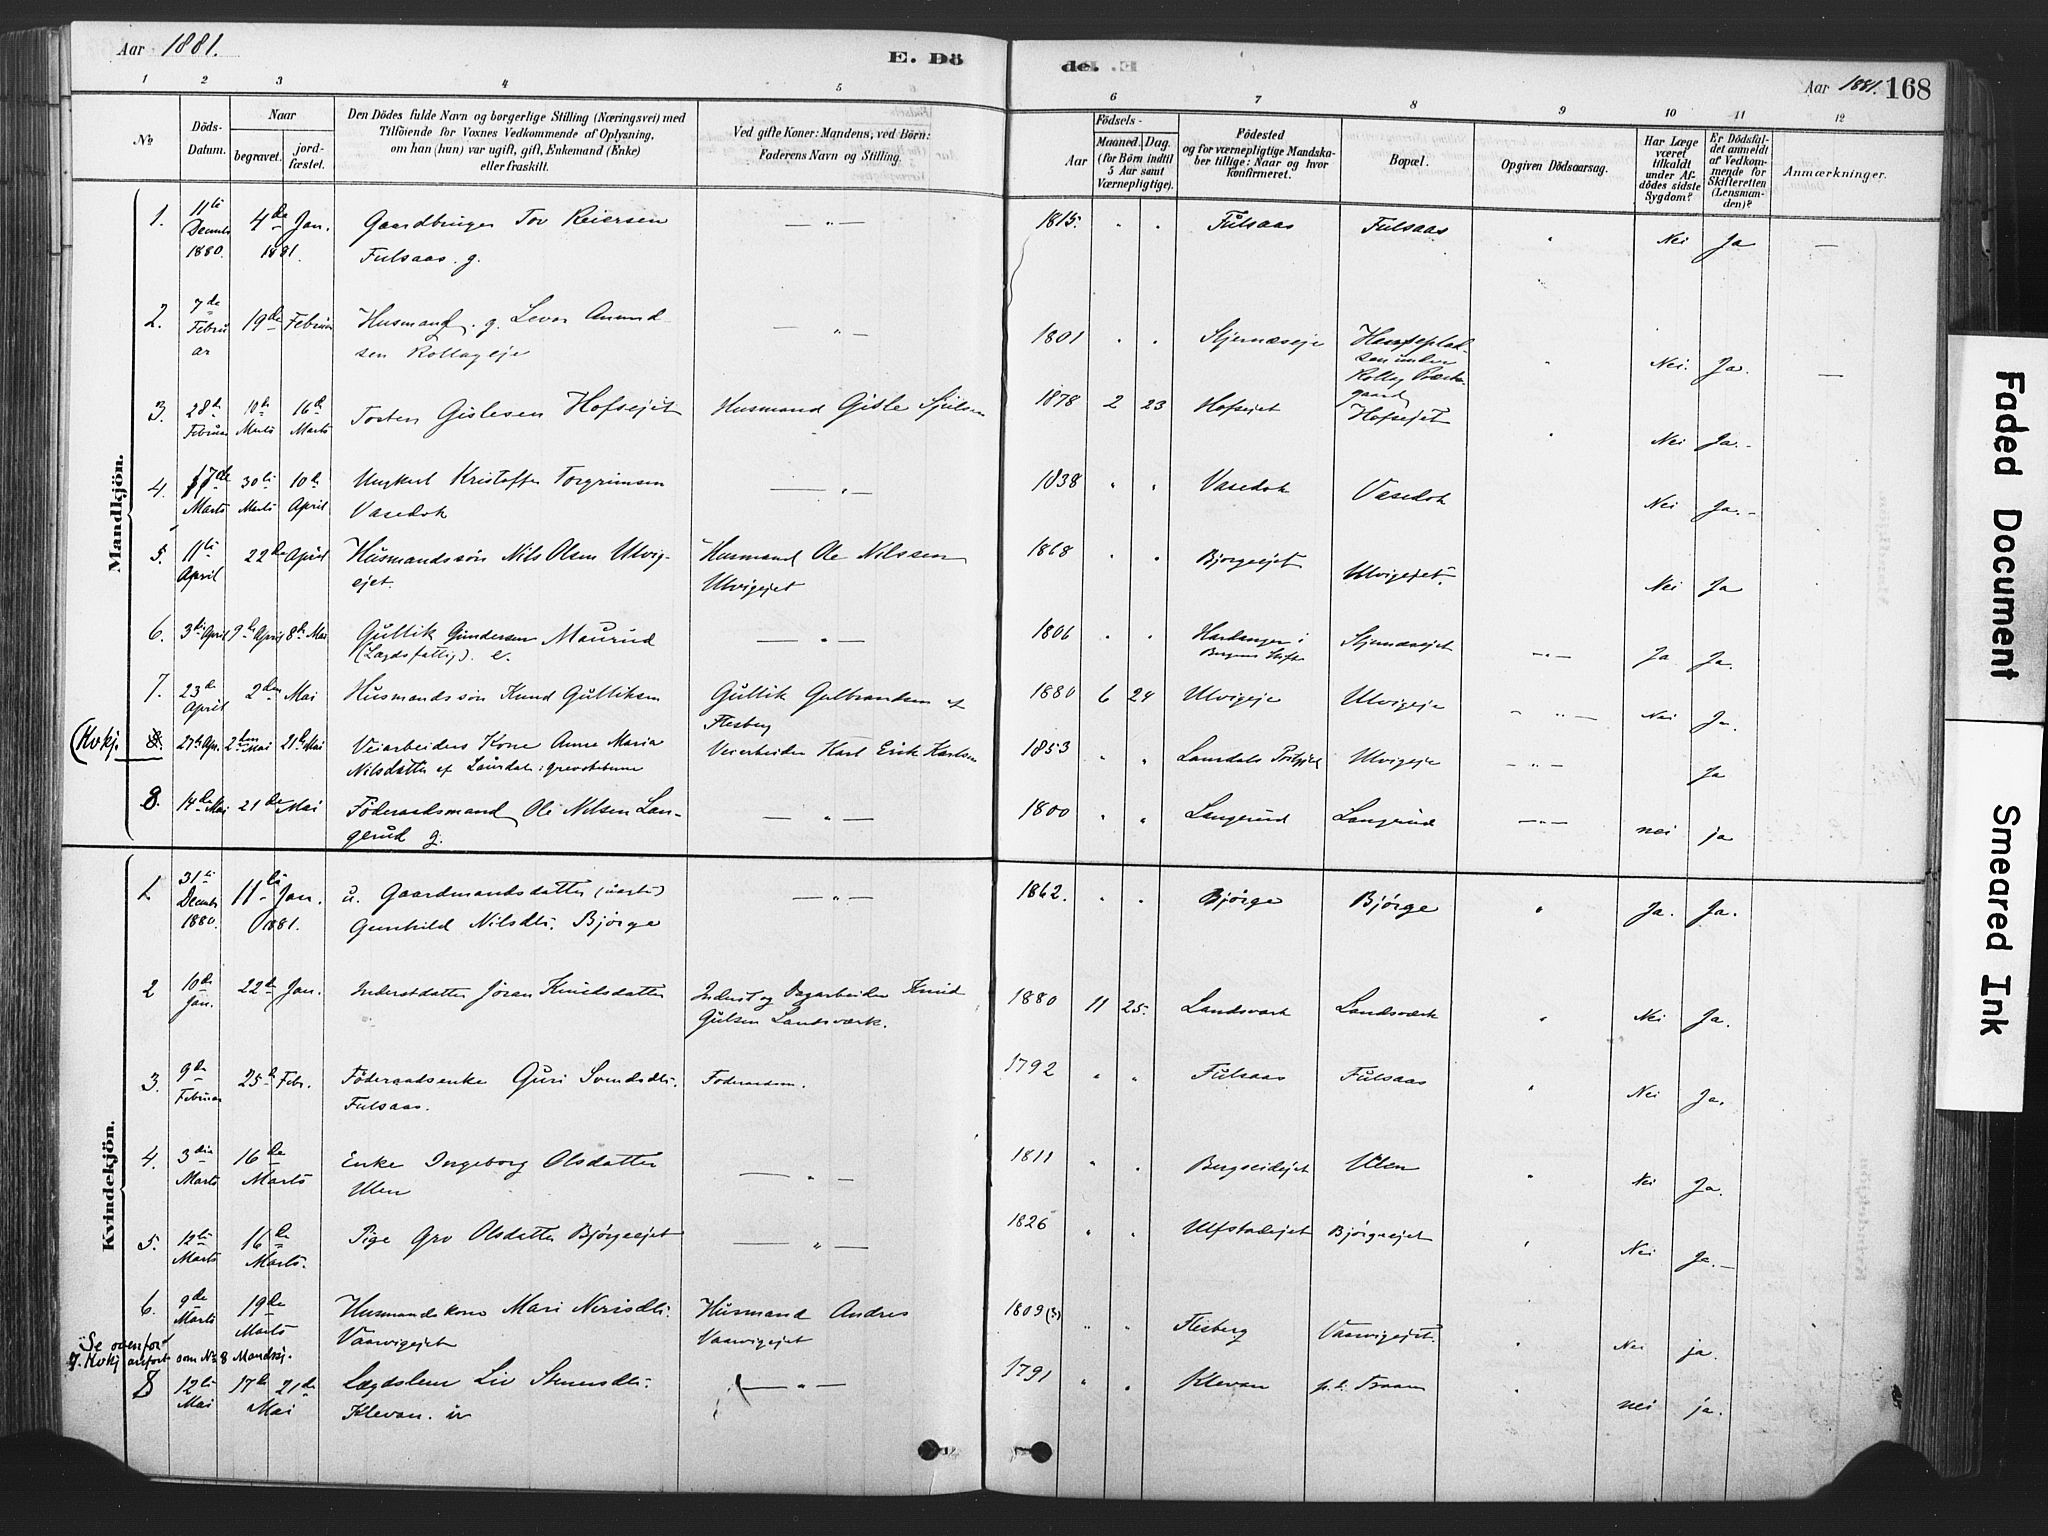 Aar 1881.
E. Dö
de.
Aar 1881. 168
1 2 3 4 5 6 7 8 9 10 11 12
No.
Döds-Datum.
Naar
begravet.
jord-fæstet.
Den Dödes fulde Navn og borgerlige Stilling (Næringsvei) med
Tilföiende for Voxnes Vedkommende af Oplysning,
om han (hun) var ugift, gift, Enkemand (Enke)
eller fraskilt.
Ved gifte Koner: Mandens, ved Börn:
Faderens Navn og Stilling.
Födsels-
Aar
Maaned. Dag.
(for Börn indtil
5 Aar samt
Værnepligtige).
Födested
og for værnepligtige Mandska-
ber tillige: Naar og hvor
konfirmeret.
Bopæl.
Opgiven Dödsaarsag.
Har Læge
været
tilkaldt
under Af-
dödes sidste
Sygdom?
Er Dödsfal-
det anmeldt
af Vedkom-
mende for
Skifteretten
(Lensman-
den)?
Anmærkninger.
Mandkjön.
1. 11te Decmb 1880. 4de Jan. 1881. Gaardbruger Tov Reiersen — " — 1815. " " Fulsaas Fulsaas " Nei Ja —
Fulsaas. g.
2. 7de Februar 19de Februar Husmand. g. Levor Amund — " — 1801 " " Stjernæseje Husmandsplad- " Nei. Ja. —
sen Rollageje
sen under
Rollag Præste-
gaard
3. 28de Februar 10de Marts 16de Marts Torsten Gislesen Hofsejet Husmand Gisle 1878 2 23 Hofsejet Hofsejet " Nei Ja.-
4. 17de Marts 30te Marts 10de April Ungkarl Kristoffer Torgrimsen — " — 1838 " " Vasedok Vasedok Nei Ja.-
Vasedok
5. 11te April 22de April Husmandssön Nils Olsen Ulvig- Husmand Ole Nilssen 1868 " " Bjørgeejet Ulvigejet. Nei Ja
ejet. Ulvigejet
6. 3die April 9de April 8de Mai Gullik Gundersen Maurud — " — 1806 " " Hardanger i Stjernæsejet — " — Ja Ja.
(Lægdsfattig). e. Bergens Stift
7. 23de April 2den Mai Husmandssön Knud Gulliksen Gullik Gulbrandsen af 1880 6 24 Ulvigeje Ulvigeje " " — Nei Ja.
Flesberg
(Kvkj. 8. 27de Apr. 2den Mai 21de Mai Veiarbeiders Kone Anne Maria Veiarbeider Karl Erik Karlsen 1853 " " Laurdals Ulvigeje — " — Ja
Nilsdatter af Laurdal i
8. 14de Mai 21de Mai Föderaadsmand Ole Nilsen Lan- — " — 1800 " " Langerud Langerud — " — nei ja
gerud g.
Kvindekjön.
1. 31te Decmb 1880. 11te Jan. 1881. u. Gaardmandsdatter — " — 1862. " " Bjørge Bjørge " Ja. Ja.
Gunhild Nilsdtr. Bjørge
2 10de Jan. 22de Jan. Inderstdatter Jöran Knudsdatter Inderst og Dagarbeider Knud 1880 11 25. Landsværk Landsværk " Nei Ja.
Gulsen Landsværk.
3. 9de Februar 25de Febr. Föderaadsenke Guri Svendsdtr. Föderaadsm. 1792 " " Fulsaas Fulsaas " Nei Ja.
Fulsaas.
4. 3die Marts 16de Marts Enke Ingeborg Olsdatter — " — 1811 " " Bergseidejet Ulen " Nei Ja.
Ulen
5. 12te Marts 16de Marts. Pige Gro Olsdatter Bjørgeejet — " — 1826 " " Ulfstadejet Bjørgeejet " Nei Ja.-
6. 9de Marts 19de Marts Husmandskone Mari Nerisdtr. Husmand Andres 1809(?) " " Flesberg Vaarvigejet. " Nei ja.
Vaarvigejet Vaarvigejet
Se ovenfor
7. Kvkj. anfört som No 8 Mandkj.
8 12te Mai 17de 21de Mai Lægdslem Liv — " — 1791 " " Klevan p.t. Traaen " nei ja.
Klevan. u
Faded Document
Smeared Ink